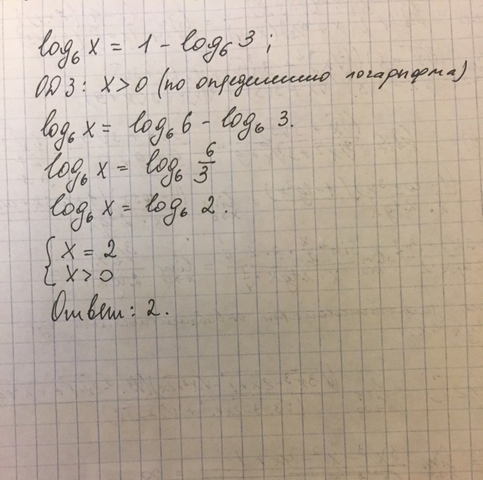 log₆ x = 1 - log₆ 3 ;
ОДЗ: x > 0 (по определению логарифма)
log₆ x = log₆ 6 - log₆ 3.
log₆ x = log₆ 6/3
log₆ x = log₆ 2.
{ x = 2
{ x > 0
Ответ: 2.